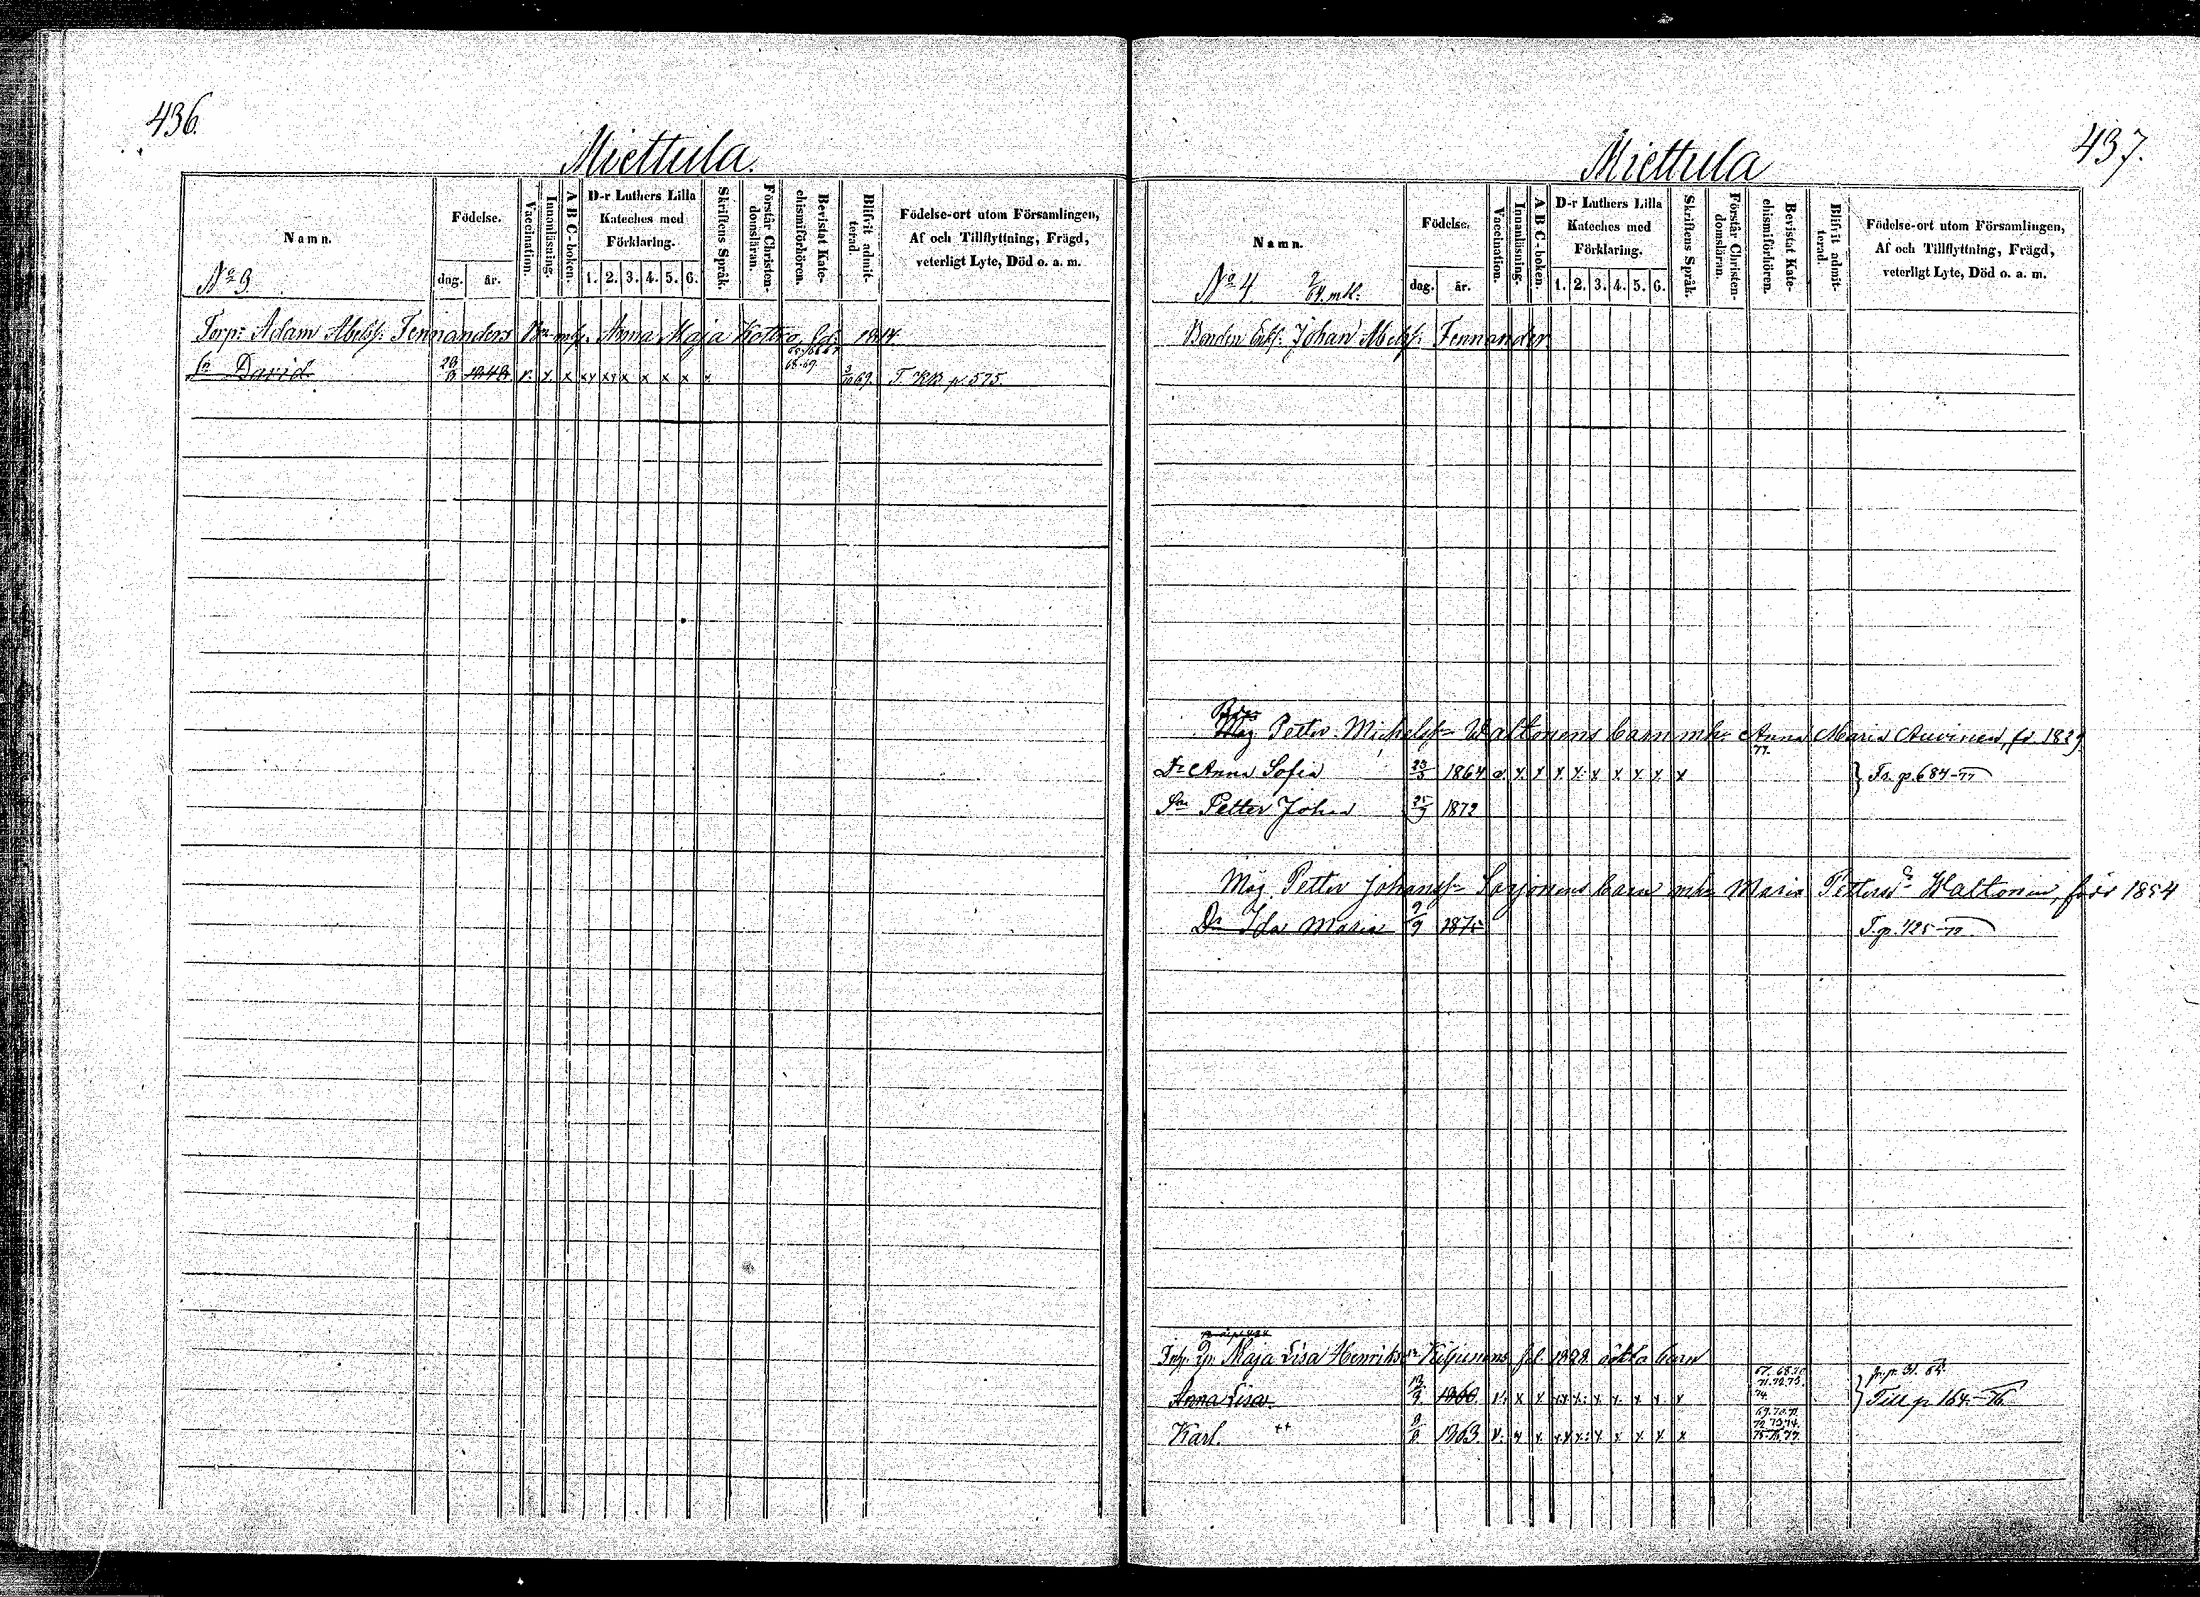 436.
Miettula.
Namn.
Födelse.
dag.
år.
Vaccination.
Innanläsning.
A B C-boken.
D-r Luthers Lilla Kateches med Förklaring.
1. 2. 3. 4. 5. 6.
Skriftens Språk.
Förstår Christendomsläran.
Bevistat Katechismiförhören.
Blifvit admitterad.
Födelse-ort utom Församlingen, Af och Tillflyttning, Frägd, veterligt Lyte, Död o. a. m.
No 3.
Torp: Adam Abelss: Tennanders Bn m. h. Anna Maja Kottro, fd: 1814
Sn David. 1848. v. x. x xy xy x x x x 68.69. 3/10 69. T. KB. p. 575.
437.
Miettula
Namn.
Födelse.
dag.
år.
Vaccination.
Innanläsning.
A B C-boken.
D-r Luthers Lilla Kateches med Förklaring.
1. 2. 3. 4. 5. 6.
Skriftens Språk.
Förstår Christendomsläran.
Bevistat Katechismiförhören.
Blifvit admitterad.
Födelse-ort utom Församlingen, Af och Tillflyttning, Frägd, veterligt Lyte, Död o. a. m.
No 4 mk:
Bonden Enkl: Johan Abelss: Tennander
Måg Petter Michelss:n Waltonens barn mh: Anna Maria Auvinen, fd. 1829
77.
Dr Anna Sofia 23/3 1864 v. x x x x x x x x x Fr. p. 684-77
Sn Petter Johan 25/9 1872
Måg Petter Johanss:n Sarjonens barn mh: Maria Petters dr Waltonen, född 1854
Dr Ida Maria 9/9 1875 T. p. 725-77.
Inh: Maja Lisa Henriksdr Kiljunens fd. 1828 oäkta barn
Anna Lisa. 13/9. 1860. v. x x. x x x x. x x. x 71.72.73. 74. Till p 164.-76.
Karl. ++ 8/8. 1863. v. x x. x x x x x x x 69.70.71. 72.73.74. 75.76.77.